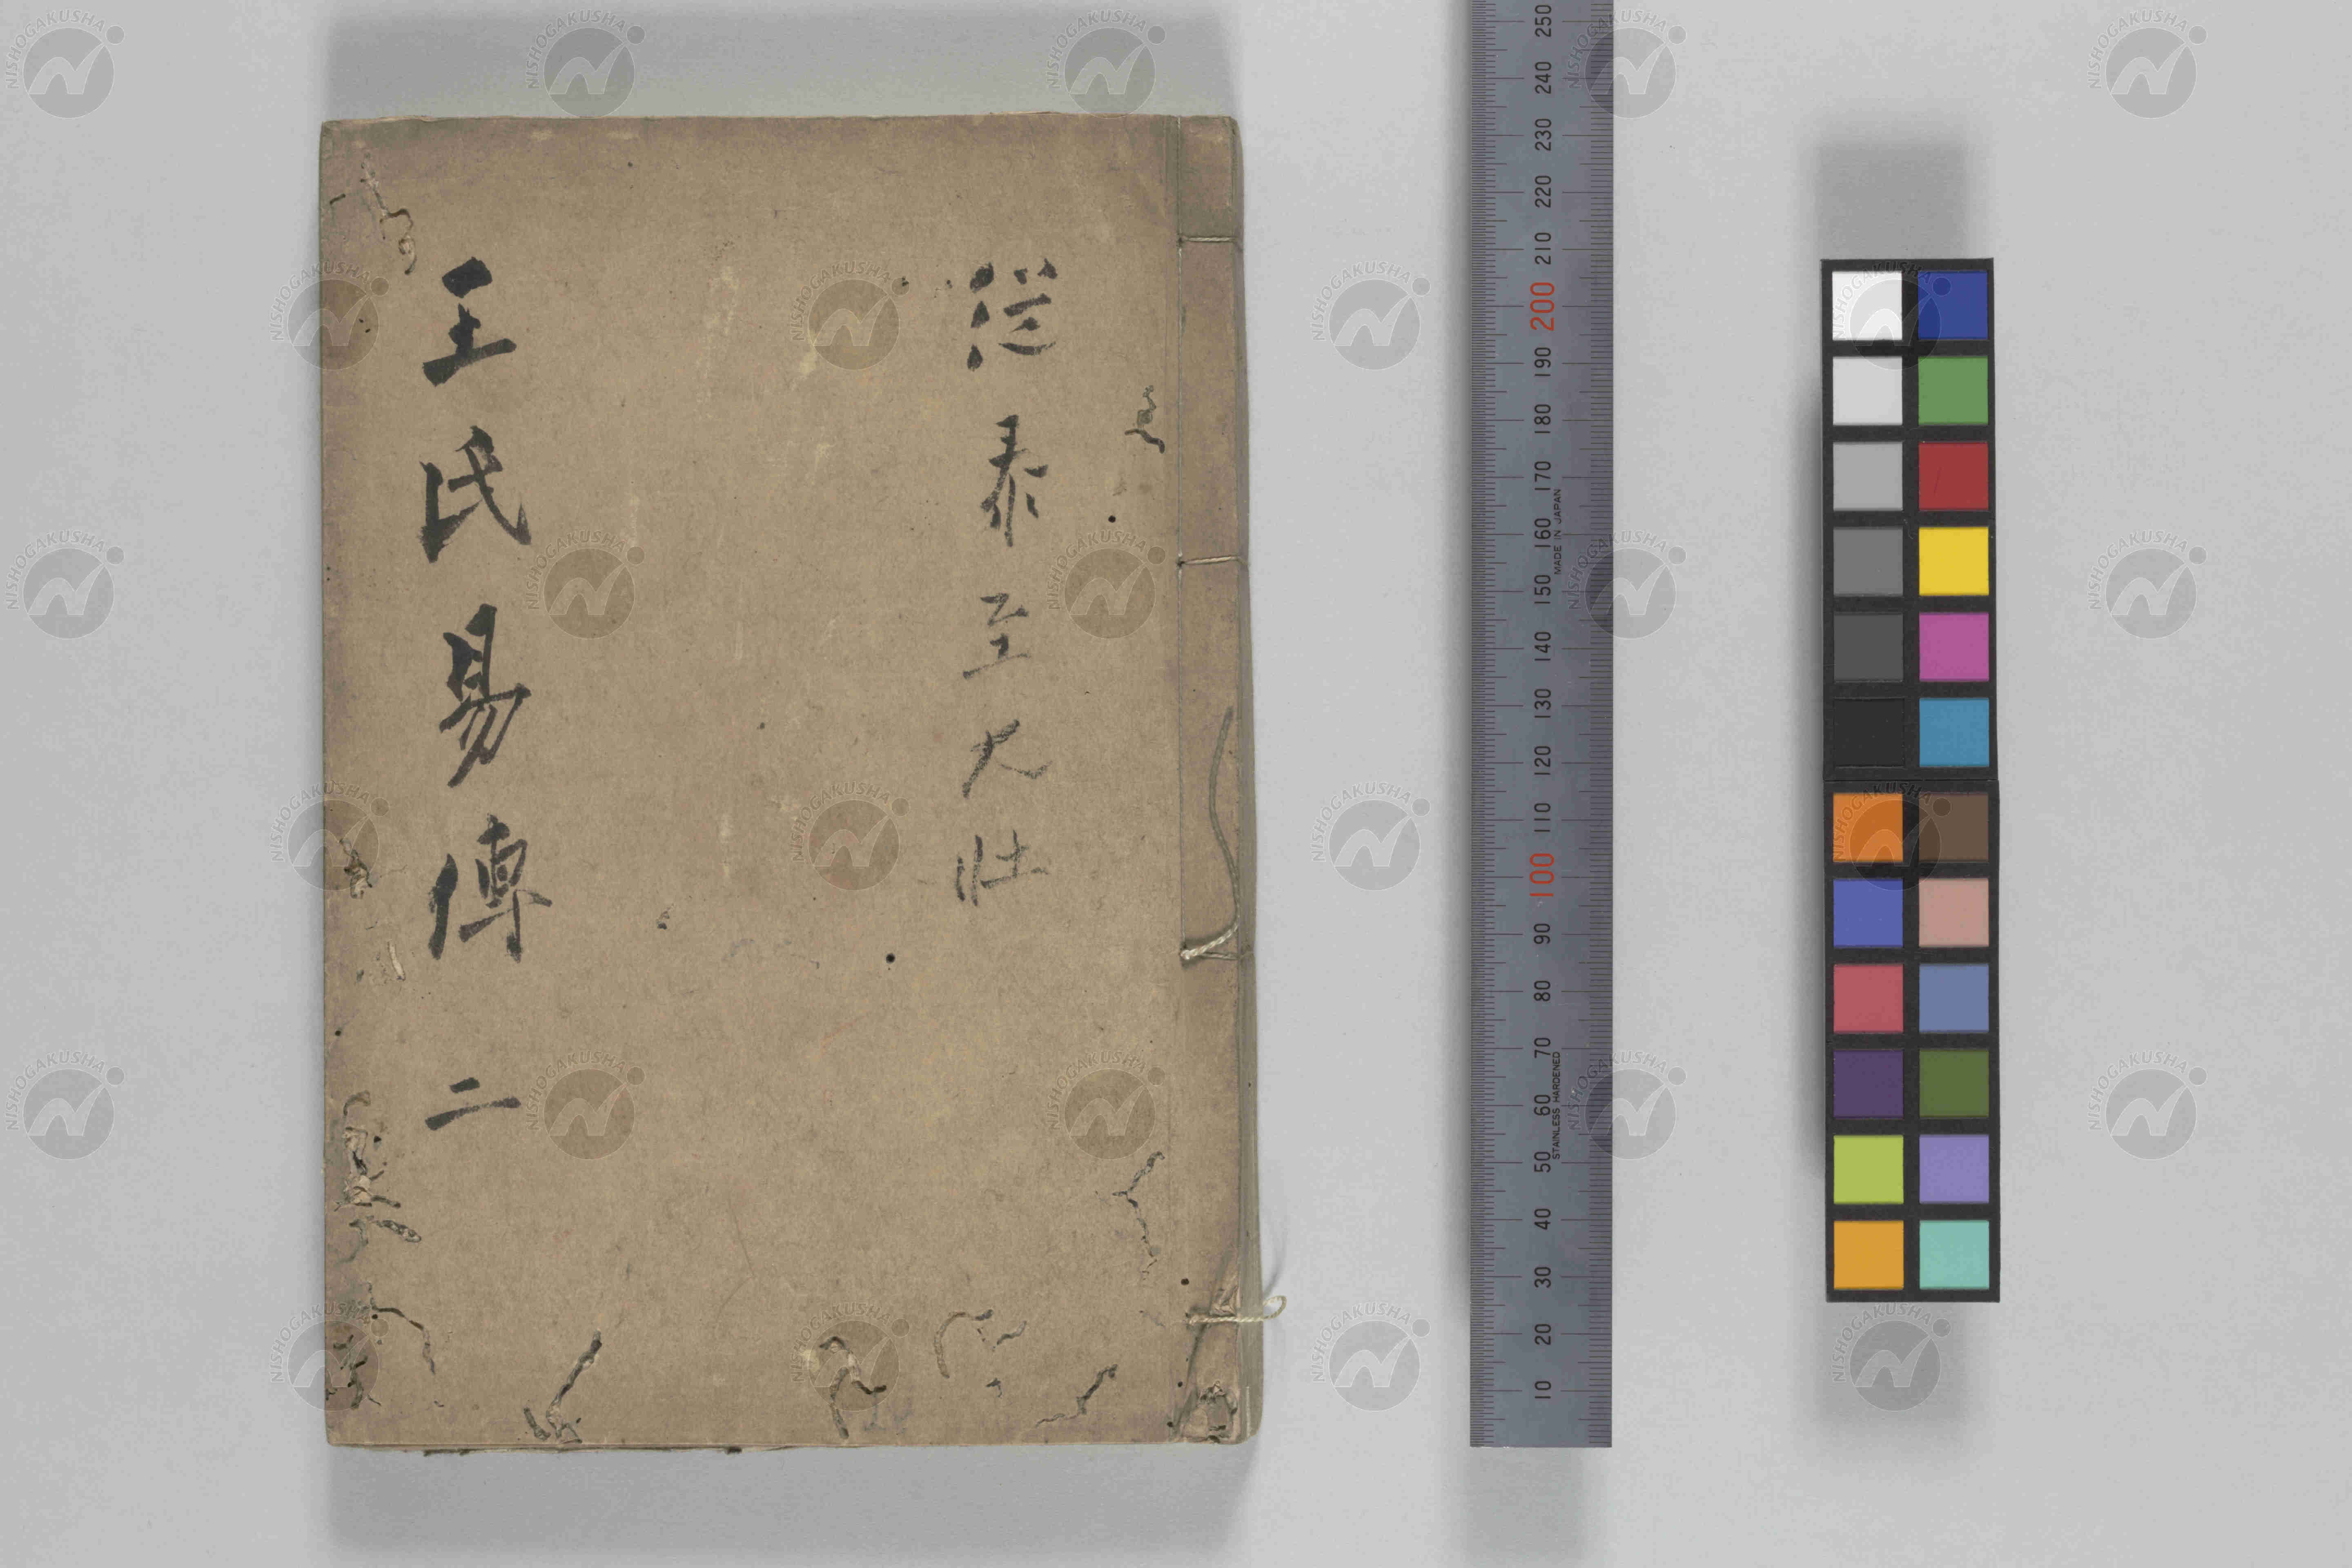 従泰至大壮
王氏易傳 二
250
240
230
220
210
200
190
180
170
160
150
140
130
120
110
100
90
80
70
60
50
40
30
20
10
MADE IN JAPAN
STAINLESS HARDENED
NISHOGAKUSHA